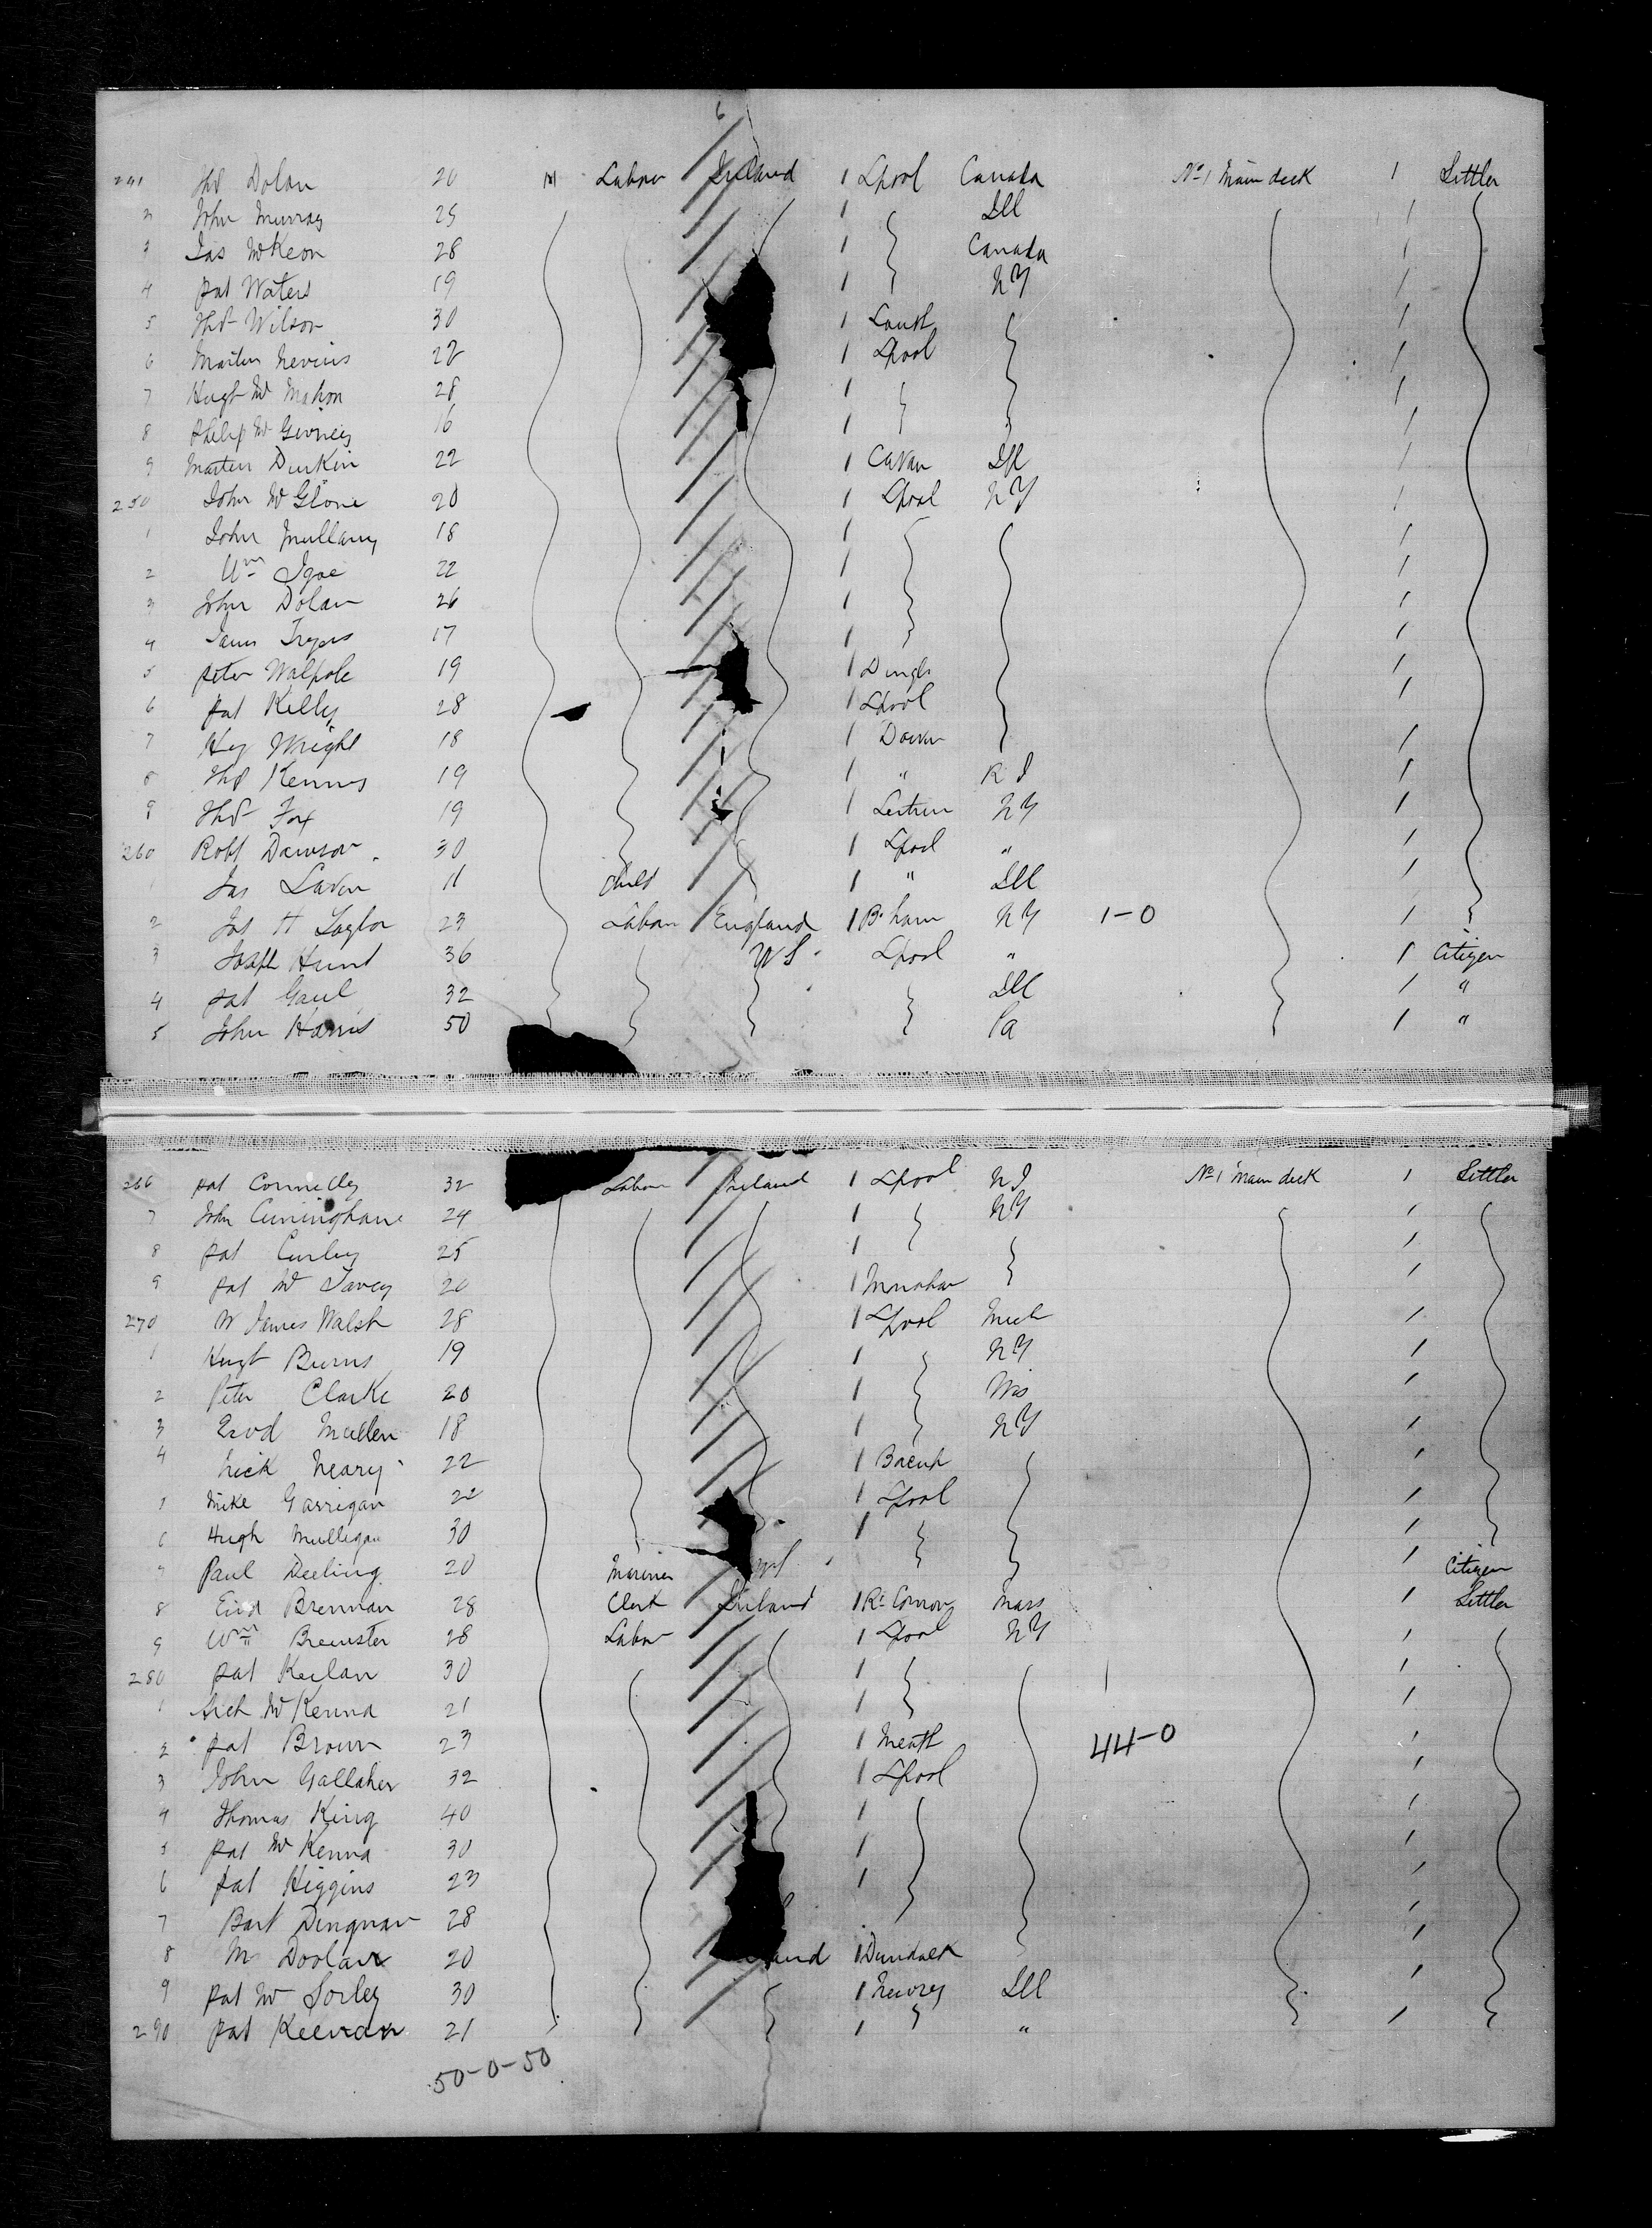 6
241 Thos Dolan 20 M Labour Ireland 1 Lpool Canada No 1 Main deck 1 Settler
2 John Murray 25 1 Ill 1
3 Jas McKeon 28 1 Canada 1
4 Pat Waters 19 1 NY 1
5 Thos Wilson 30 1 1
6 Martin Nevins 22 1 Lpool 1
7 Hugh McMahon 28 1 1
8 Philip McGivney 16 1 1
9 Martin Durkin 22 1 Cavan Ill 1
250 John McGlone 20 1 Lpool NY 1
1 John Mullany 18 1 1
2 Wm Igoe 22 1 1
3 John Dolan 26 1 1
4 James 17 1 1
5 Peter Walpole 19 1 1
6 Pat Kelly 28 1 Lpool 1
7 Hy Wright 18 1 Down 1
8 Thos 19 1 " R I 1
9 Thos Fox 19 1 Leitrim NY 1
260 Robt Dawson 30 1 Lpool " 1
1 Jas Laven 11 Child 1 " Ill 1
2 Jos H Taylor 23 Labour England 1 B'ham NY 1-0 1
3 Joseph Hunt 36 US Lpool " 1 Citizen
4 Pat Gaul 32 Ill 1 "
5 John Harris 50 Pa 1 "
266 Pat Connelley 32 Labour Ireland 1 Lpool NJ No 1 Main deck 1 Settler
7 John Cuninghame 24 1 NY 1
8 Pat Curley 25 1 1
9 Pat Mc 20 1 Monahan 1
270 W James Walsh 28 1 Lpool Mich 1
1 Hugh Burns 19 1 NY 1
2 Peter Clarke 20 1 Wis 1
3 Mullen 18 1 NY 1
4 Mick Neary 22 1 Bacup 1
5 Mike Garrigan 22 1 Lpool 1
6 Hugh Mulligan 30 1 1
7 Paul Deeling 20 Mariner US 1 Citizen
8 Brennan 28 Clerk Ireland 1 Mass 1 Settler
9 Wm Brewster 28 Labour 1 Lpool NY 1
280 Pat Keelan 30 1 1
1 Mich McKenna 21 1 1
2 Pat Brown 23 1 Meath 44-0 1
3 John Gallaher 32 1 Lpool 1
4 Thomas King 40 1 1
5 Pat McKenna 30 1 1
6 Pat Higgins 23 1 1
7 Bart Dingnan 28 1
8 M Doolan 20 1 Dundalk 1
9 Pat McSorley 30 1 Newrey Ill 1
290 Pat Keenan 21 1 " 1
50-0-50